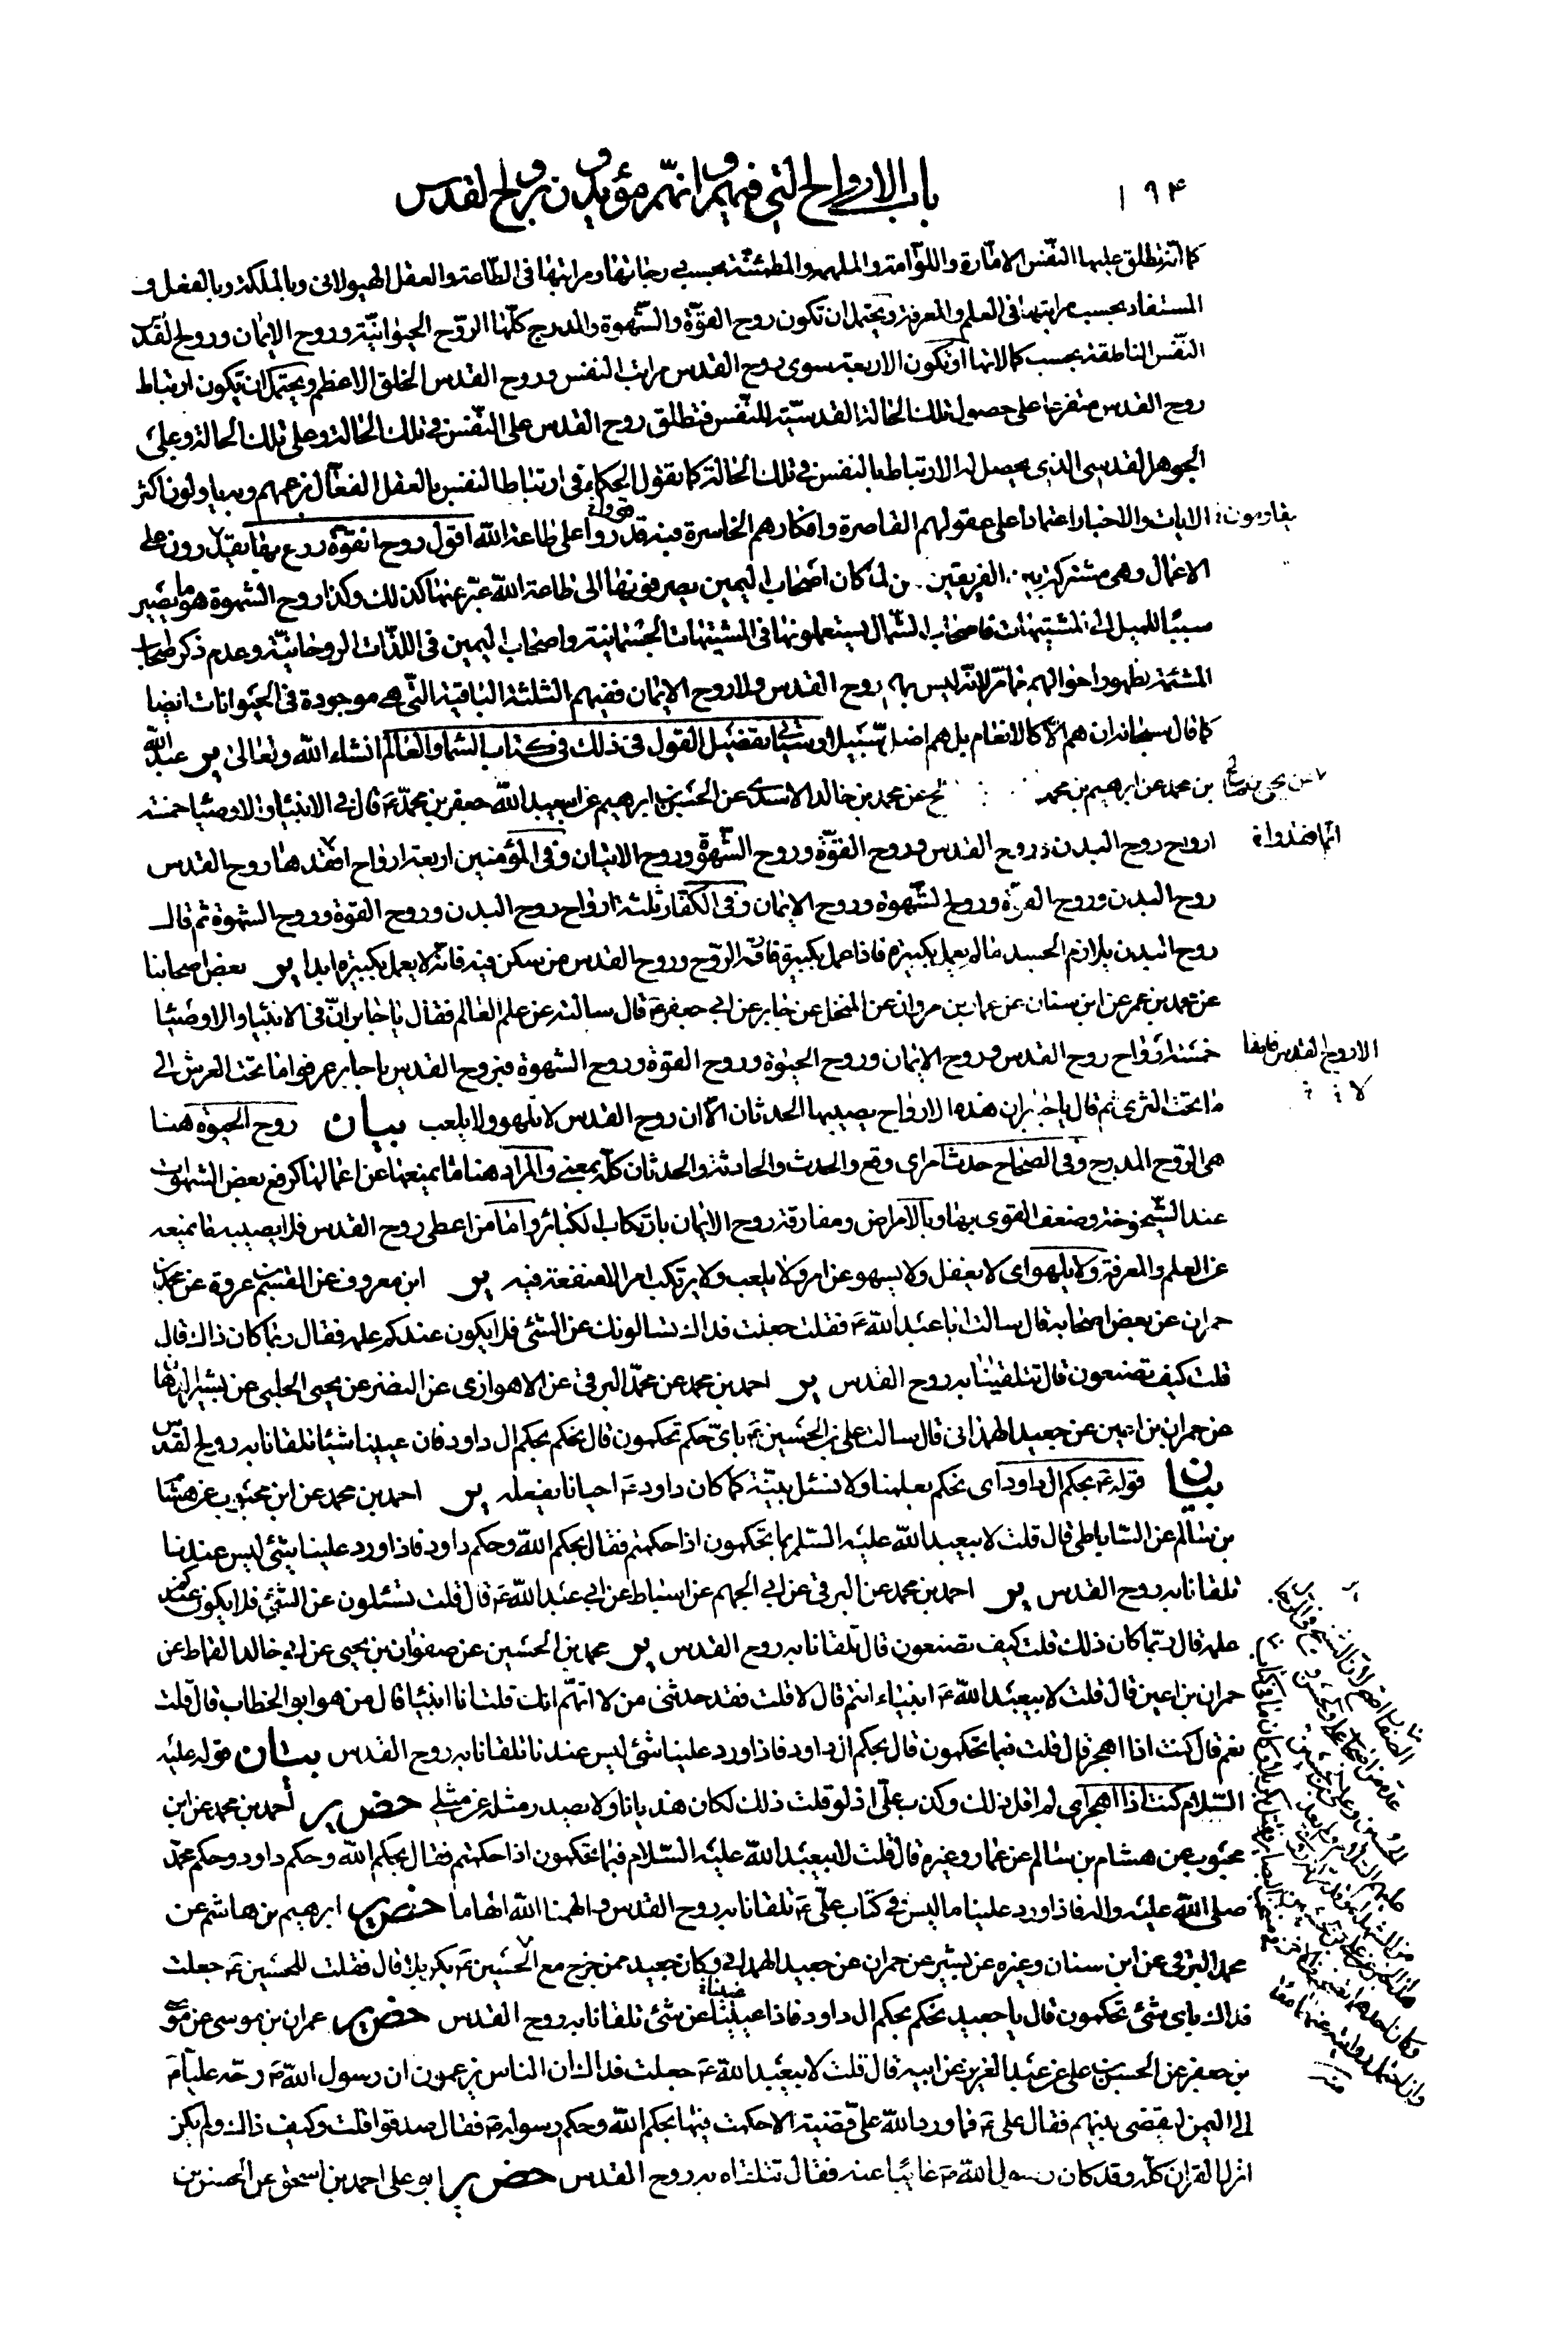 ١٩٤
باب الارواح التى فيهم وانهم مؤيدون بروح القدس
كما انه تطلق عليها النفس الامّارة واللوّامة والملهمة والمطمئنّة بحسب درجاتها ومراتبها فى الطّاعة والعقل الهيولانى وبالملكة وبالفعل و
المستفاد بحسب مراتبها فى العلم والمعرفة ويحتمل ان تكون روح القوّة والشّهوة والمدرج كلّها الروّح الحيوانيّة وروح الايمان وروح القدس
النّفس الناطقة بحسب كمالاتها او تكون الاربعة سوى روح القدس مراتب النفس وروح القدس الخلق الاعظم ويحتمل ان يكون ارتباط
روح القدس متفرعا على حصول تلك الحالة القدسيّة للنّفس فتطلق روح القدس على النّفس فى تلك الحالة وعلى تلك الحالة وعلى
الجوهر القدسى الذى يحصل له الارتباط بالنفس فى تلك الحالة كما يقول الحكماء فى ارتباط النفس بالعقل الفعّال بزعمهم وبه ياولون اكثر
الايات والاخبار اعتمادا على عقولهم القاصرة وافكارهم الخاسرة فبه قدروا على طاعة اللّه اقول روح القوّة روح بها يقدرون على
الاعمال وهى مشتركة الفريقين لما كان اصحاب اليمين يصرفونها الى طاعة اللّه عبّر عنها كذلك وكذا روح الشهوة هو ما يصير
سببا للميل الى المشتهيات فاصحاب الشمال يستعملونها فى المشتهيات الجسمانية واصحاب اليمين فى اللذّات الروحانيّة وعدم ذكر اصحاب
المشئمة لظهور احوالهم ممّا مرّ لانّه ليس لهم روح القدس ولا روح الايمان ففيهم الثلثة الباقية التّى هى موجودة فى الحيوانات ايضا
كما قال سبحانه ان هم الاّ كالانعام بل هم اضلّ سبيلا وسيأتى تفصيل القول فى ذلك فى كتاب السّماء والعالم انشاء اللّه وتعالى ير عبد اللّه
بن محمد عن ابرهيم بن محمد عن محمد بن خالد الاسدى عن الحسن بن ابرهيم عن ابيعبد اللّه جعفر بن محمّد ع قال فى الانبياء والاوصياء خمسة
ارواح روح البدن وروح القدس وروح القوّة وروح الشّهوة وروح الايمان وفى المؤمنين اربعة ارواح افقدها روح القدس
روح البدن وروح القوّة وروح الشّهوة وروح الايمان وفى الكفّار ثلثة ارواح روح البدن وروح القوّة وروح الشهوة ثم قال
روح الايمان يلازم الجسد ما لم يعمل بكبيرة فاذا عمل بكبيرة فارقه الرّوح وروح القدس من سكن فيه فانّه لا يعمل بكبيرة ابدا ير بعض اصحابنا
عن محمد بن عمر عن ابن سنان عن عمار بن مروان عن المنخل عن جابر عن ابى جعفر ع قال سالته عن علم العالم فقال يا جابر انّ فى الانبياء والاوصياء
خمسة ارواح روح القدس وروح الايمان وروح الحيوة وروح القوّة وروح الشهوة فبروح القدس يا جابر عرفوا ما تحت العرش الى
ما تحت الثرى ثم قال يا جابر ان هذه الارواح يصيبها الحدثان الاّ ان روح القدس لا تلهو ولا يلعب بيان روح الحيوة هنا
هى الروّح المدرج وفى الصّحاح حدث امر اى وقع والحدث والحادثة والحدثان كلّه بمعنى والمراد هنا ما يمنعها عن اعمالها كرفع بعض الشهوات
عند الشيخوخة وضعف القوى بها وبالامراض ومفارقة روح الايمان بارتكاب الكبائر واما من اعطى روح القدس فلا يصيبه ما يمنعه
عن العلم والمعرفة ولا يلهو اى لا يغفل ولا يسهو عن امر ولا يلعب ولا يرتكب امرا لا منفعة فيه ير ابن معروف عن القسم بن عروة عن محمد بن
حمران عن بعض اصحابه قال سالت ابا عبد اللّه ع فقلت جعلت فداك تسالونك عن الشّئ فلا يكون عندكم علمه فقال ربّما كان ذاك قال
قلت كيف تصنعون قال تتلقينا به روح القدس ير احمد بن محمد عن محمّد البرقى عن الاهوازى عن النضر عن يحيى الحلبى عن بشير الدهان
عن حمران بن اعين عن جعيد الهمدانى قال سالت على بن الحسين ع باىّ حكم تحكمون قال نحكم بحكم ال داود فان عيينا شيئا تلقانا به روح القدس
بيان قوله ع بحكم ال داود اى نحكم بعلمنا ولا نسئل بيّنة كما كان داود ع احيانا يفعله ير احمد بن محمد عن ابن محبوب عن هشام
بن سالم عن الساباطى قال قلت لابيعبد اللّه عليه السّلم بما تحكمون اذا حكمتم فقال بحكم اللّه وحكم داود فاذا ورد علينا شئ ليس عندنا
تلقانا به روح القدس ير احمد بن محمد عن البرقى عن ابى الجهم عن اسباط عن ابى عبد اللّه ع قال قلت تسئلون عن الشئ فلا يكون عندكم
علمه قال ربّما كان ذلك قلت كيف تصنعون قال تلقانا به روح القدس ير محمد بن الحسين عن صفوان بن يحيى عن ابى خالد القماط عن
حمران بن اعين قال قلت لابيعبد اللّه ع انبياء انتم قال لا قلت فقد حدثنى من لا اتّهم انك قلت انا انبياء قال من هو ابو الخطاب قال قلت
نعم قال كنت اذا اهجر قال قلت فبما تحكمون قال بحكم ال داود فاذا ورد علينا شئ ليس عندنا تلقانا به روح القدس بيان قوله عليه
السّلام كنت اذا اهجر اى لم اقل ذلك وكذب علىّ اذ لو قلت ذلك لكان هذيانا ولا يصدر مثله عن مثلى خص ير احمد بن محمد عن ابن
محبوب عن هشام بن سالم عن عمار وغيره قال قلت لابيعبد اللّه عليه السّلام فبما تحكمون اذا حكمتم فقال بحكم اللّه وحكم داود وحكم محمّد
صلى اللّه عليه واله فاذا ورد علينا ما ليس فى كتاب علىّ ع تلقانا به روح القدس والهمنا اللّه الهاما خص ير ابرهيم بن هاشم عن
محمد البرقى عن ابن سنان وغيره عن بشير عن حمران عن جعيد الهمدانى وكان جعيد ممن خرج مع الحسين ع بكربلا قال فقلت للحسين ع جعلت
فداك باى شئ تحكمون قال يا جعيد نحكم بحكم ال داود فاذا عيينا عن شئ تلقانا به روح القدس خص ير عمران بن موسى عن موسى
بن جعفر عن الحسن بن على عن على بن عبد العزيز عن ابيه قال قلت لابيعبد اللّه ع جعلت فداك ان الناس يزعمون ان رسول اللّه ص وجّه عليّا ع
الى اليمن ليقضى بينهم فقال على ع فما ورد اللّه علىّ قضيّة الا حكمت فيها بحكم اللّه وحكم رسوله ص فقال صدقوا قلت وكيف ذاك ولم يكن
انزل القران كلّه وقد كان رسول اللّه ص غائبا عنه فقال تتلقاه به روح القدس خص ير ابو على احمد بن اسحق عن الحسن بن